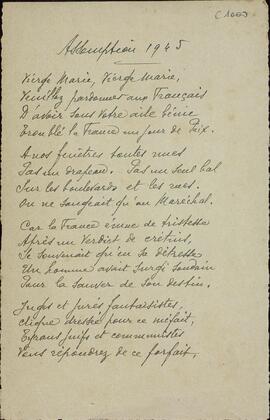 (1009)
Assomption 1945
Vierge Marie, Vierge Marie,
Veuillez pardonner aux Français
D'avoir sous votre aile bénie
Troublé la France un jour de Paix.
A nos fenêtres toutes nues
Pas un drapeau. Pas un seul bal
Sur les boulevards et les rues.
On ne songeait qu'au Maréchal.
Car la France émue de tristesse
Après un Verdict de crétins,
Se souvenait qu'en sa détresse
Un homme avait surgi soudain
Pour la sauver de son destin.
Juges et jurés fantaisistes,
Clique dressée pour ce méfait,
Tyrans juifs et communistes
Vous répondrez de ce forfait,